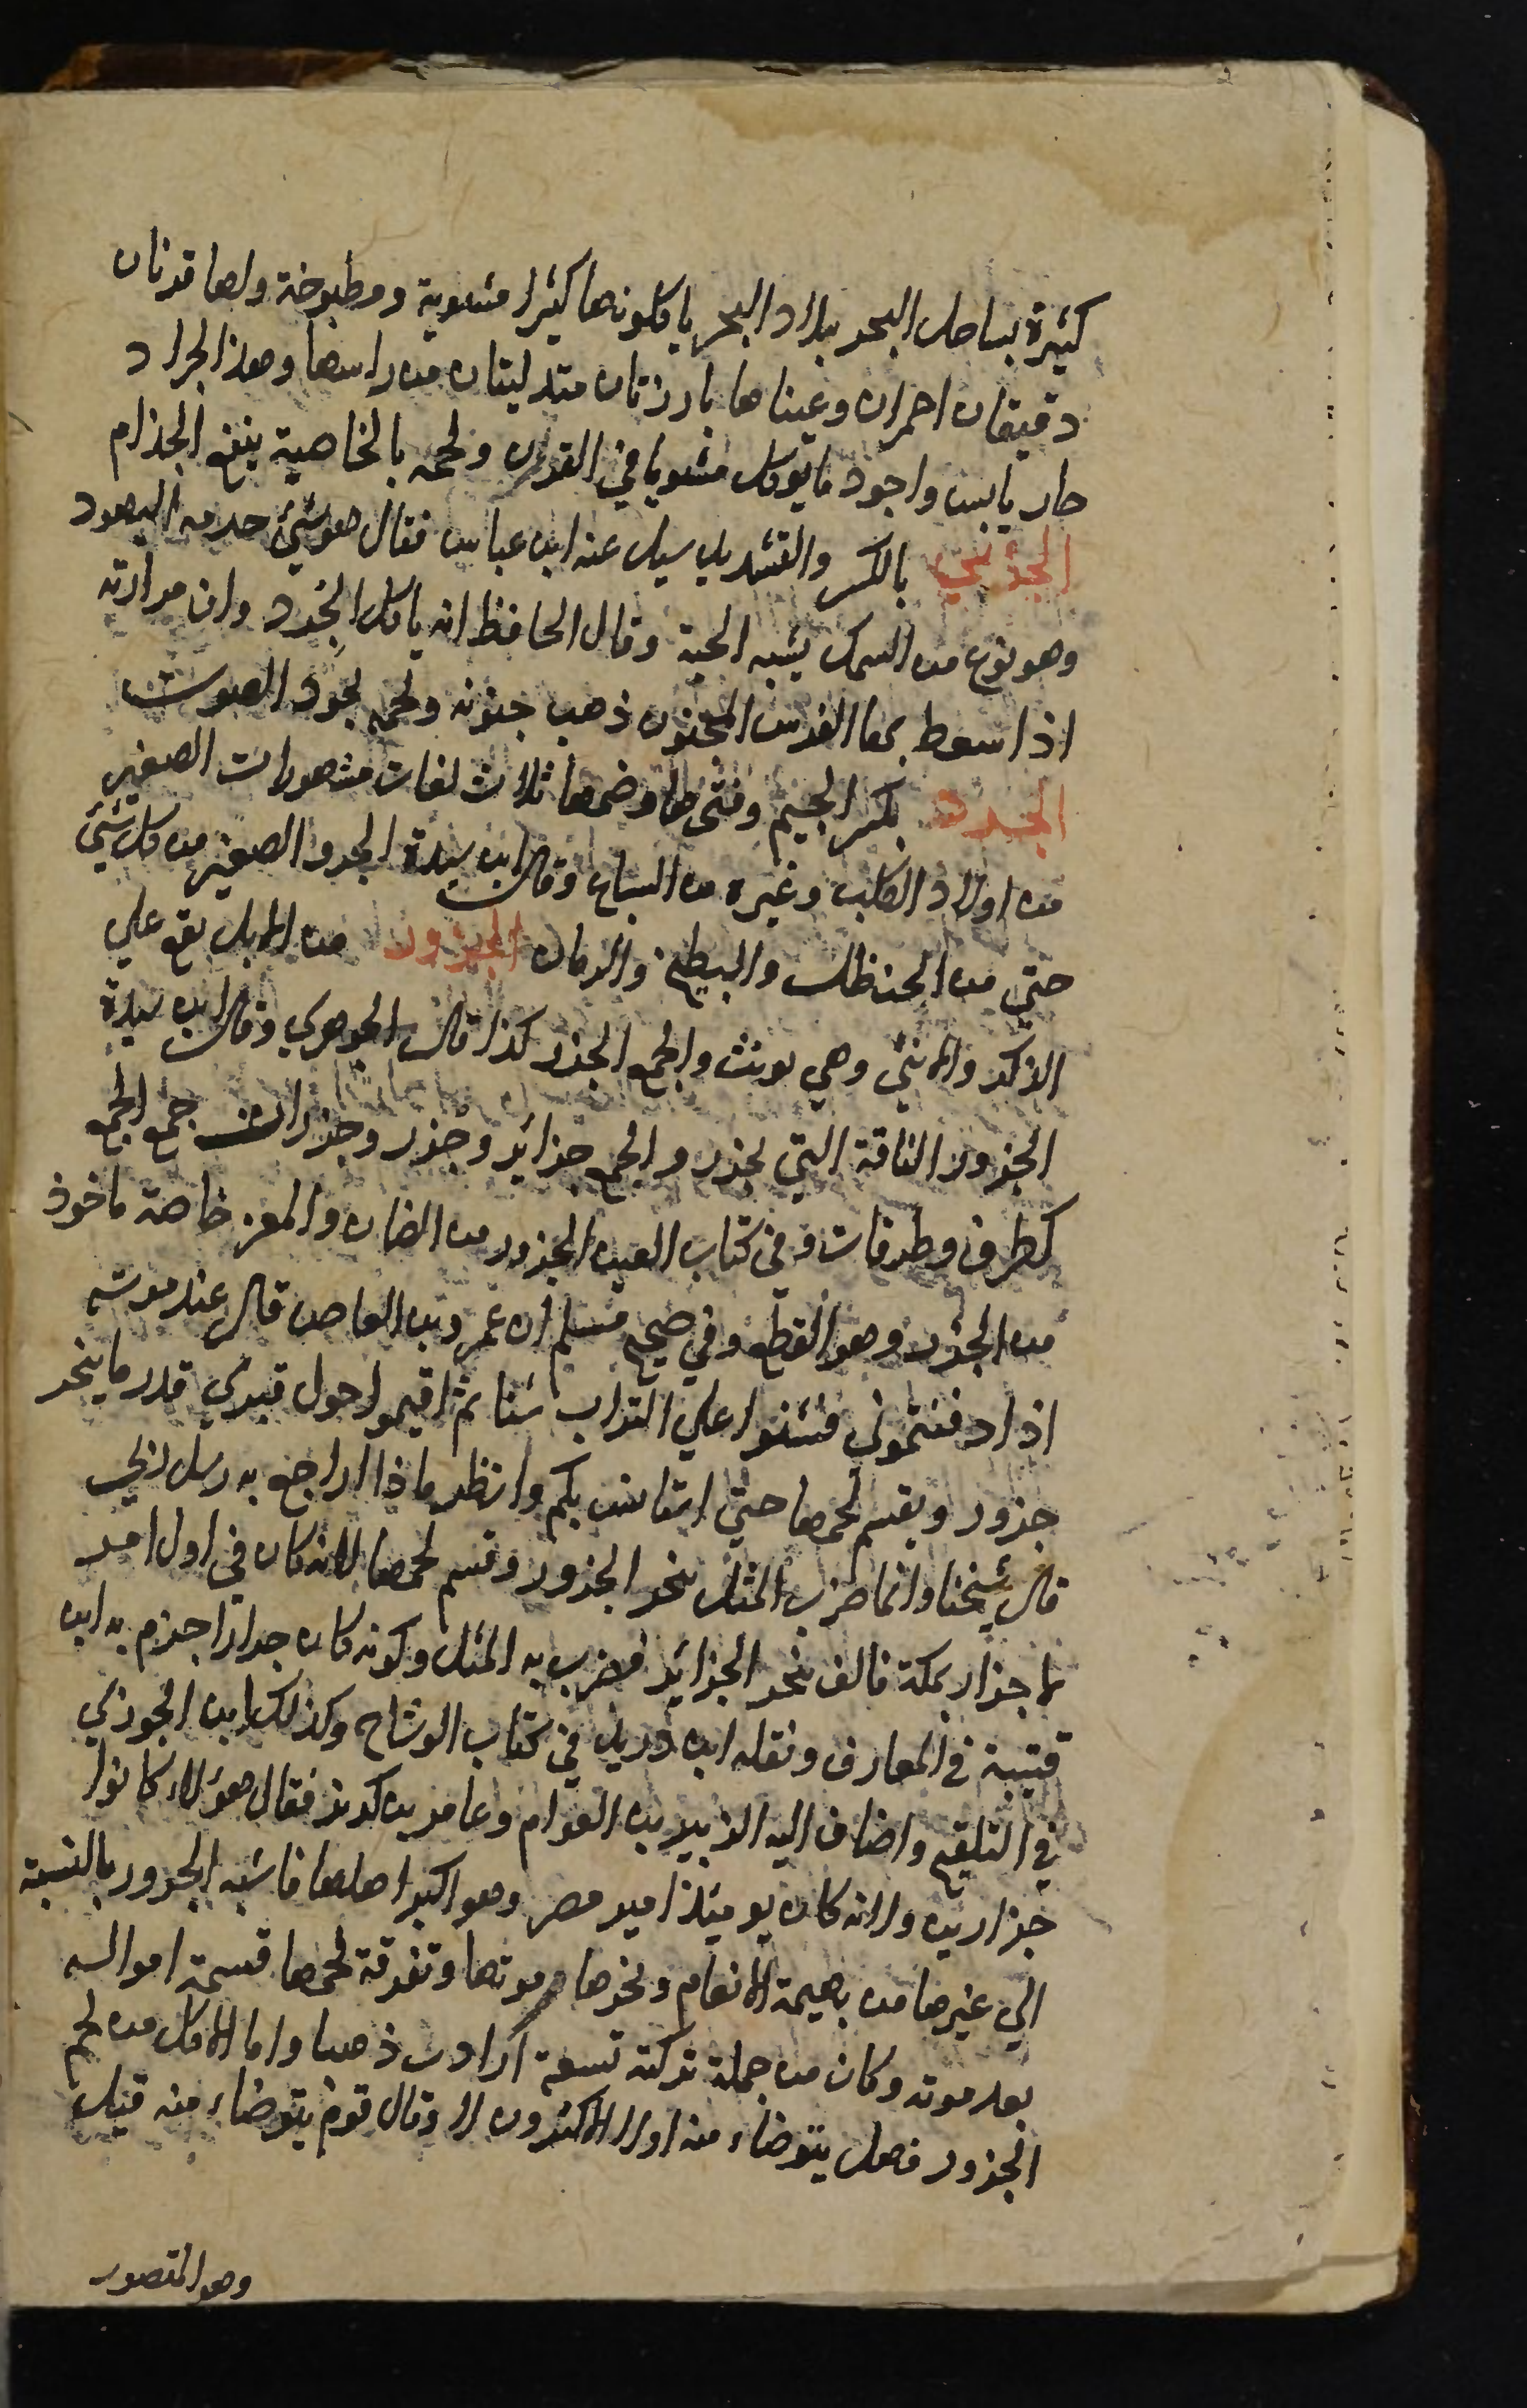 كثيرة بساحل البحر ببلاد البحر ياكلونها كثيرا مشوية ومطبوخة ولها قرنان
دقيقان احمران وعيناها بارزتان متدليتان من راسها وهذا الجراد
حار يابس واجود ما يوكل مشويا في الفرن ولحمه بالخاصية ينفع الجذام
الجري بالكسر والتشديد سيل عنه ابن عباس فقال هو شئ حرمه اليهود
وهو نوع من السمك يشبه الحية وقال الحافظ انه ياكل الجرد وان مرارته
اذا سعط بها الفرس المجنون ذهب جنونه ولحمه يجود الصوت
الجرو بكسر الجيم وفتحها وضمها ثلاث لغات مشهورات الصغير
من اولاد الكلب وغيره من السباع وقال ابن سيدة الجرو الصغير من كل شئ
حتي من الحنظل والبطيخ والرمان الجزور من الابل يقع علي
الذكر والانثي وهي يونث والجمع الجزر كذا قال الجوهري وقال ابن سيدة
الجزور الناقة التي تجزر والجمع جزائر وجزر وجزرات جمع الجمع
كطرق وطرقات وفي كتاب العين الجزور من الضان والمعز خاصة ماخوذ
من الجزر وهو القطع وفي صحيح مسلم ان عمرو بن العاص قال عند موته
اذا دفنتموني فشنوا علي التراب شنا ثم اقيموا حول قبري قدر ما ينحر
جزور ويقسم لحمها حتي استانس بكم وانظر ماذا اراجع به رسل ربي
قال شيخنا وانما ضرب المثل بنحر الجزور وقسم لحمها لانه كان في اول امر
ما جزار بمكة فالف نحر الجزائر فضرب به المثل وكونه كان جزارا جزم به ابن
قتيبة في المعارف ونقله ابن دريد في كتاب الوشاح وكذلك ابن الجوزي
في التلقيح واضاف اليه الزبير بن العوام وعامر بن كريز فقال هؤلاء كانوا
جزارين ولانه كان يومئذ امير مصر وهو اكبر اهلها فاشبه الجزور بالنسبة
الي غيرها من بهيمة الانعام ونحرها موتها وتفرقة لحمها قسمة امواله
بعد موته وكان من جملة تركته تسعة ارادب ذهبا واما الاكل من لحم
الجزور فهل يتوضاء منه اولا الاكثرون لا وقال قوم يتوضاء منه قيل
وهو المنصور